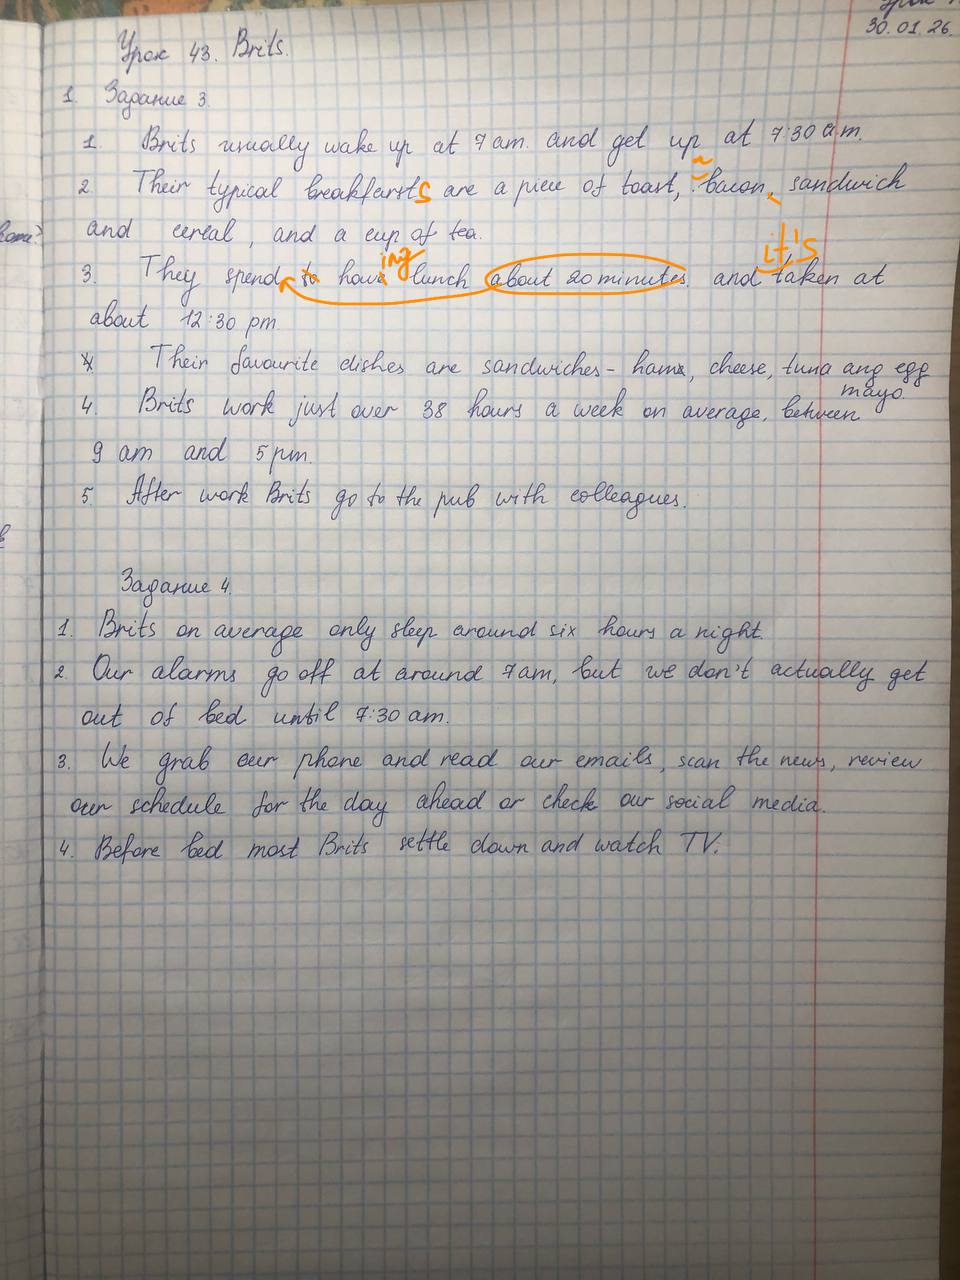 30.01.26.
Урок 43. Brits.
1. Задание 3.
1. Brits usually wake up at 7 am. and get up at 7:30 a.m.
2. Their typical breakfasts are a piece of toast, bacon, sandwich
and cereal, and a cup of tea.
ing it's
3. They spend to have lunch about 20 minutes. and taken at
about 12:30 pm.
4 Their favourite dishes are sandwiches - ham, cheese, tuna ang egg
mayo.
4. Brits work just over 38 hours a week on average, between
9 am and 5 pm.
5. After work Brits go to the pub with colleagues.
Задание 4.
1. Brits on average only sleep around six hours a night.
2. Our alarms go off at around 7am, but we don't actually get
out of bed until 7:30 am.
3. We grab our phone and read our emails, scan the news, review
our schedule for the day ahead or check our social media.
4. Before bed most Brits settle down and watch TV.